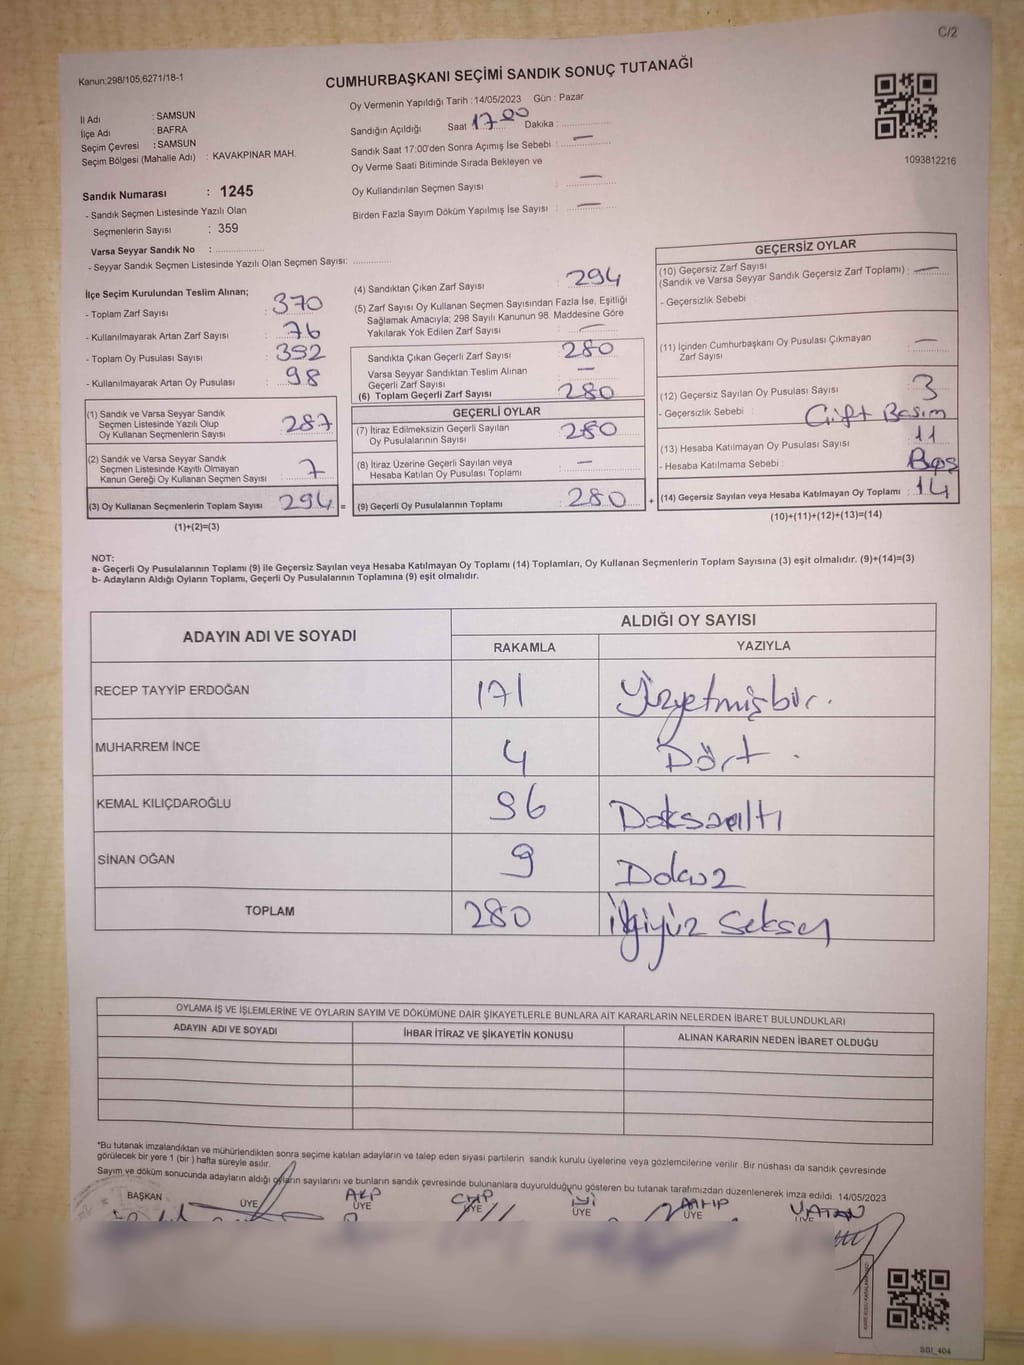 C/2
Kanun:298/105;6271/18-1
CUMHURBAŞKANI SEÇİMİ SANDIK SONUÇ TUTANAĞI
İl Adı : SAMSUN
İlçe Adı : BAFRA
Seçim Çevresi : SAMSUN
Seçim Bölgesi (Mahalle Adı) : KAVAKPINAR MAH.
Sandık Numarası : 1245
- Sandık Seçmen Listesinde Yazılı Olan
Seçmenlerin Sayısı : 359
Varsa Seyyar Sandık No :
- Seyyar Sandık Seçmen Listesinde Yazılı Olan Seçmen Sayısı:
Oy Vermenin Yapıldığı Tarih : 14/05/2023 Gün : Pazar
Sandığın Açıldığı Saat 17.00 Dakika :
Sandık Saat 17:00'den Sonra Açımış İse Sebebi : —
Oy Verme Saati Bitiminde Sırada Bekleyen ve
Oy Kullandırılan Seçmen Sayısı : —
Birden Fazla Sayım Döküm Yapılmış İse Sayısı : —
1093812216
İlçe Seçim Kurulundan Teslim Alınan;
- Toplam Zarf Sayısı : 370
- Kullanılmayarak Artan Zarf Sayısı : 76
- Toplam Oy Pusulası Sayısı : 392
- Kullanılmayarak Artan Oy Pusulası : 98
(1) Sandık ve Varsa Seyyar Sandık
Seçmen Listesinde Yazılı Olup
Oy Kullanan Seçmenlerin Sayısı : 287
(2) Sandık ve Varsa Seyyar Sandık
Seçmen Listesinde Kayıtlı Olmayan
Kanun Gereği Oy Kullanan Seçmen Sayısı : 7
(3) Oy Kullanan Seçmenlerin Toplam Sayısı : 294 =
(1)+(2)=(3)
(4) Sandıktan Çıkan Zarf Sayısı : 294
(5) Zarf Sayısı Oy Kullanan Seçmen Sayısından Fazla İse, Eşitliği
Sağlamak Amacıyla; 298 Sayılı Kanunun 98. Maddesine Göre
Yakılarak Yok Edilen Zarf Sayısı : —
Sandıkta Çıkan Geçerli Zarf Sayısı : 280
Varsa Seyyar Sandıktan Teslim Alınan
Geçerli Zarf Sayısı : —
(6) Toplam Geçerli Zarf Sayısı : 280
GEÇERLİ OYLAR
(7) İtiraz Edilmeksizin Geçerli Sayılan
Oy Pusulalarının Sayısı : 280
(8) İtiraz Üzerine Geçerli Sayılan veya
Hesaba Katılan Oy Pusulası Toplamı : —
(9) Geçerli Oy Pusulalarının Toplamı : 280 +
GEÇERSİZ OYLAR
(10) Geçersiz Zarf Sayısı
(Sandık ve Varsa Seyyar Sandık Geçersiz Zarf Toplamı) : —
- Geçersizlik Sebebi
(11) İçinden Cumhurbaşkanı Oy Pusulası Çıkmayan
Zarf Sayısı : —
(12) Geçersiz Sayılan Oy Pusulası Sayısı : 3
- Geçersizlik Sebebi : Çift Basım
(13) Hesaba Katılmayan Oy Pusulası Sayısı : 11
- Hesaba Katılmama Sebebi : Boş
(14) Geçersiz Sayılan veya Hesaba Katılmayan Oy Toplamı : 14
(10)+(11)+(12)+(13)=(14)
NOT:
a- Geçerli Oy Pusulalarının Toplamı (9) ile Geçersiz Sayılan veya Hesaba Katılmayan Oy Toplamı (14) Toplamları, Oy Kullanan Seçmenlerin Toplam Sayısına (3) eşit olmalıdır. (9)+(14)=(3)
b- Adayların Aldığı Oyların Toplamı, Geçerli Oy Pusulalarının Toplamına (9) eşit olmalıdır.
ADAYIN ADI VE SOYADI ALDIĞI OY SAYISI
RAKAMLA YAZIYLA
RECEP TAYYİP ERDOĞAN 171 Yüzyetmişbir.
MUHARREM İNCE 4 Dört .
KEMAL KILIÇDAROĞLU 96 Doksanaltı
SİNAN OĞAN 9 Dokuz
TOPLAM 280 İkiyüz Seksen
OYLAMA İŞ VE İŞLEMLERİNE VE OYLARIN SAYIM VE DÖKÜMÜNE DAİR ŞİKAYETLERLE BUNLARA AİT KARARLARIN NELERDEN İBARET BULUNDUKLARI
ADAYIN ADI VE SOYADI İHBAR İTİRAZ VE ŞİKAYETİN KONUSU ALINAN KARARIN NEDEN İBARET OLDUĞU
*Bu tutanak imzalandıktan ve mühürlendikten sonra seçime katılan adayların ve talep eden siyasi partilerin sandık kurulu üyelerine veya gözlemcilerine verilir. Bir nüshası da sandık çevresinde
görülecek bir yere 1 (bir ) hafta süreyle asılır.
Sayım ve döküm sonucunda adayların aldığı oyların sayılarını ve bunların sandık çevresinde bulunanlara duyurulduğunu gösteren bu tutanak tarafımızdan düzenlenerek imza edildi. 14/05/2023
AKP CHP İYİ MHP VATAN
BAŞKAN ÜYE ÜYE ÜYE ÜYE ÜYE ÜYE
SSI_404